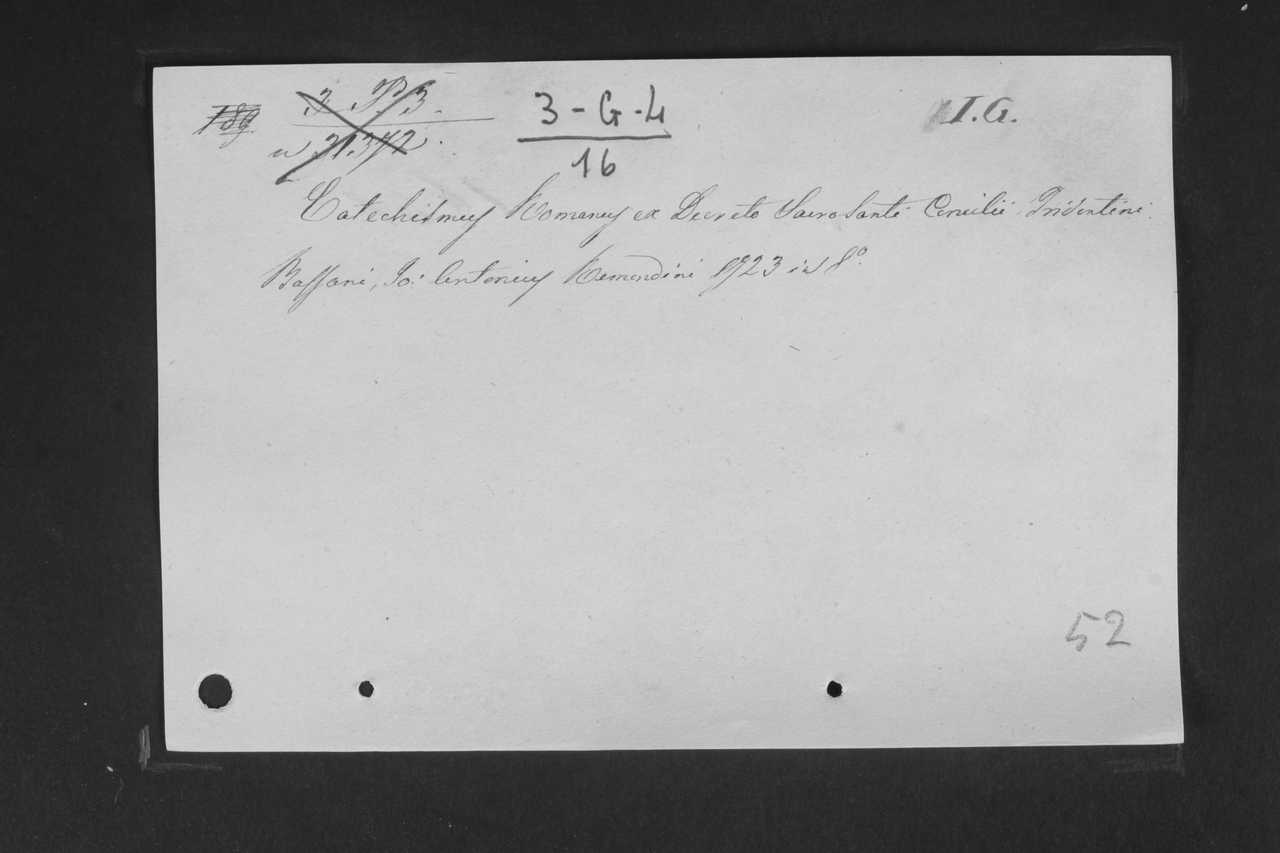 189 3. P. 3. 3-G-4 I.G.
n 31.372. 16
Catechismus Romanus ex Decreto Sacrosanti Concilii Tridentini.
Bassani, Jo: Antonius Remondini 1723 in 8º.
52